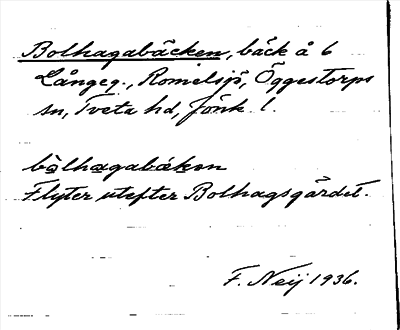 Bolhagabäcken, bäck å 6
Långeg., Romelsjö, Öggestorps
sn, Tveta hd, Jönk. l.
bolhagabäken
Flyter utefter Bolhagsgärdet.
F. Neij 1936.